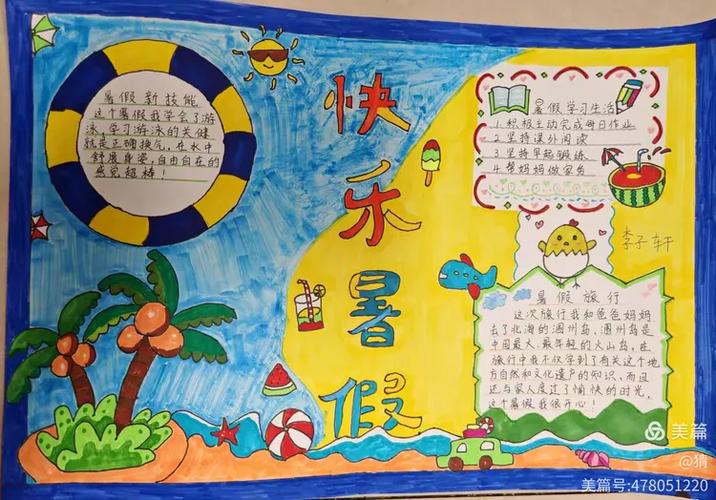 快
乐
暑
假
暑假新技能
这个暑假我学会了游
泳，学习游泳的关健
就是正确换气，在水中
舒展身姿，自由自在的
感觉超棒！
暑假学习生活
1.积极主动完成每日作业
2.坚持课外阅读
3.坚持早起锻练
4.帮妈妈做家务
李子轩
暑假旅行
这次旅行我和爸爸妈妈
去了北海的涠州岛，涠州岛是
中国最大、最年轻的火山岛，在
旅行中我不仅学到了有关这个地
方自然和文化遗产的知识，而且
还与家人度过了愉快的时光，
这个暑假我很开心！
美篇
@猜
美篇号:478051220